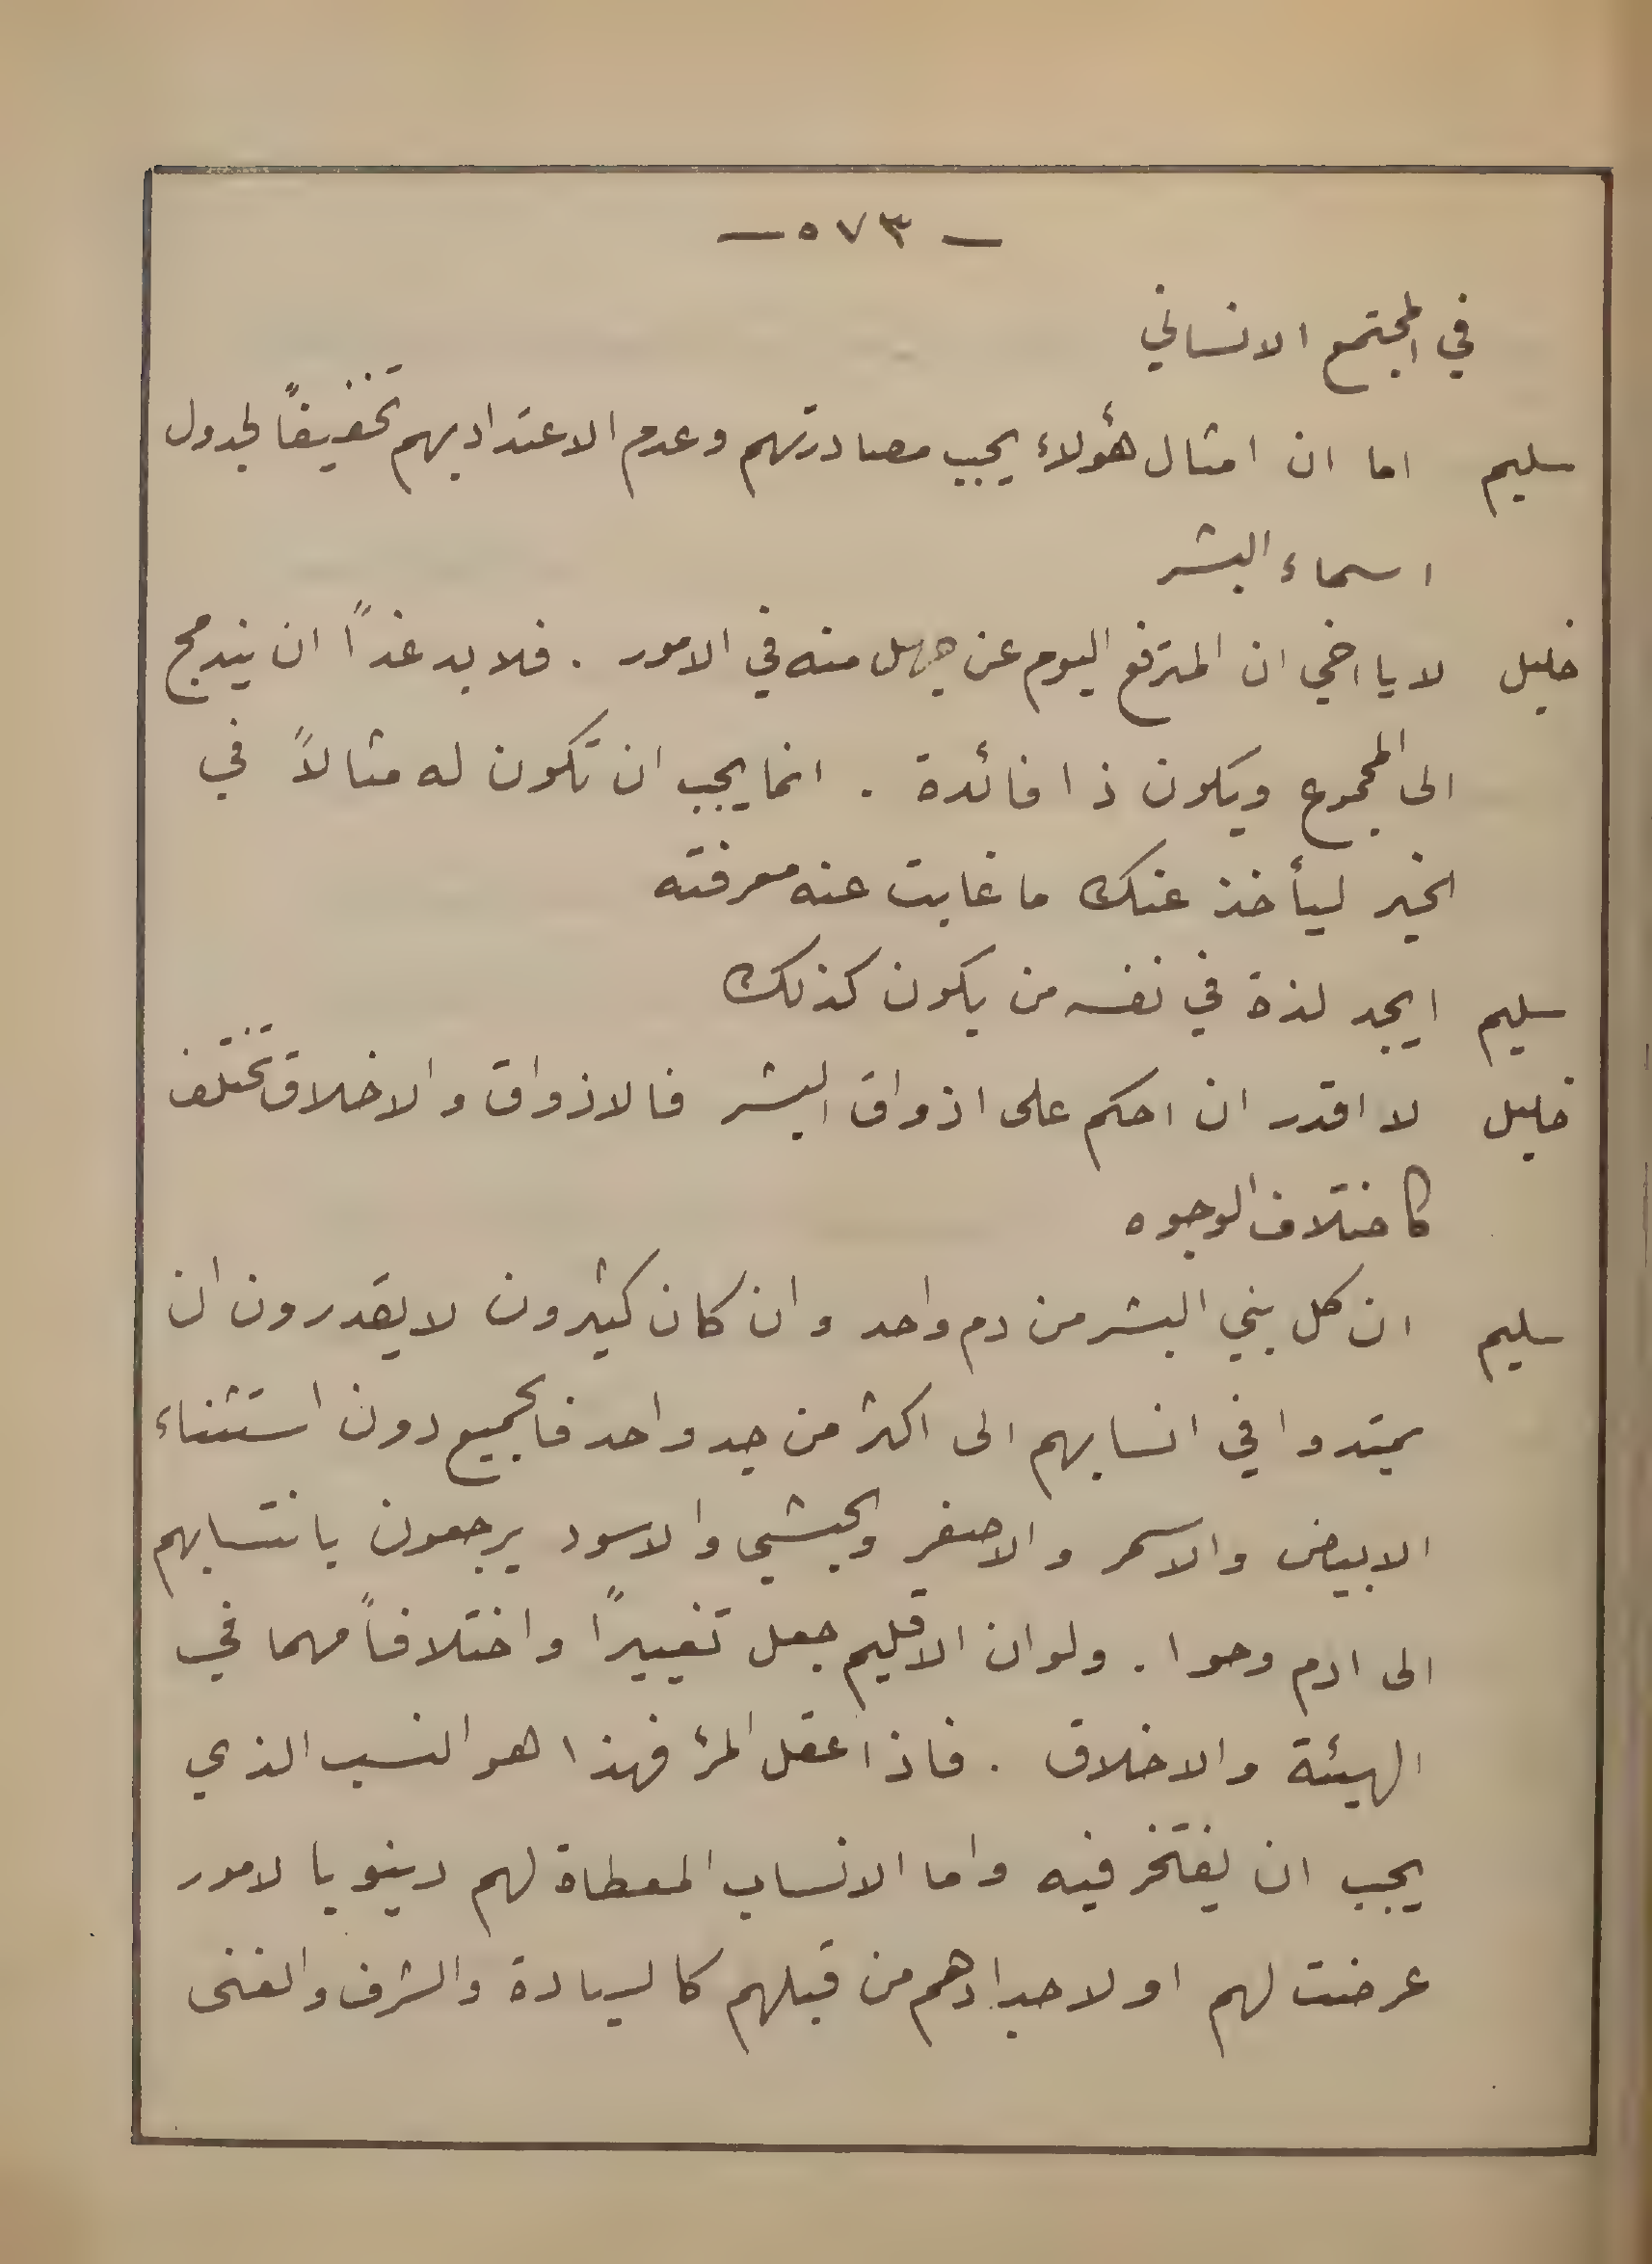 — ٥٧٣ —
في المجتمع الانساني
سليم اما ان امثال هؤلاء يجب مصادرتهم وعدم الاعتداد بهم تخفيفاً لجدول
اسماء البشر
خليل لا يا اخي ان المترفع اليوم عن جهل منه في الامور . فلا بد غداً ان يندمج
الى المجموع ويكون ذا فائدة . انما يجب ان تكون له مثالاً في
الخير ليأخذ عنك ما غابت عنه معرفته
سليم ايجد لذة في نفسه من يكون كذلك
خليل لا اقدر ان احكم على اذواق البشر فالاذواق والاخلاق تختلف
كاختلاف الوجوه
سليم ان كل بني البشر من دم واحد وان كان كثيرون لا يقدرون ان
يمتدوا في انسابهم الى اكثر من جد واحد فالجميع دون استثناء
الابيض والاسمر والاصفر والحبشي والاسود يرجعون بانتسابهم
الى ادم وحوا . ولو ان الاقليم جعل تغييراً واختلافاً مهما في
الهيئة والاخلاق . فاذا عقل المرء فهذا هو النسب الذي
يجب ان يفتخر فيه واما الانساب المعطاة لهم دينويا لامور
عرضت لهم او لاجدادهم من قبلهم كالسيادة والشرف والغنى